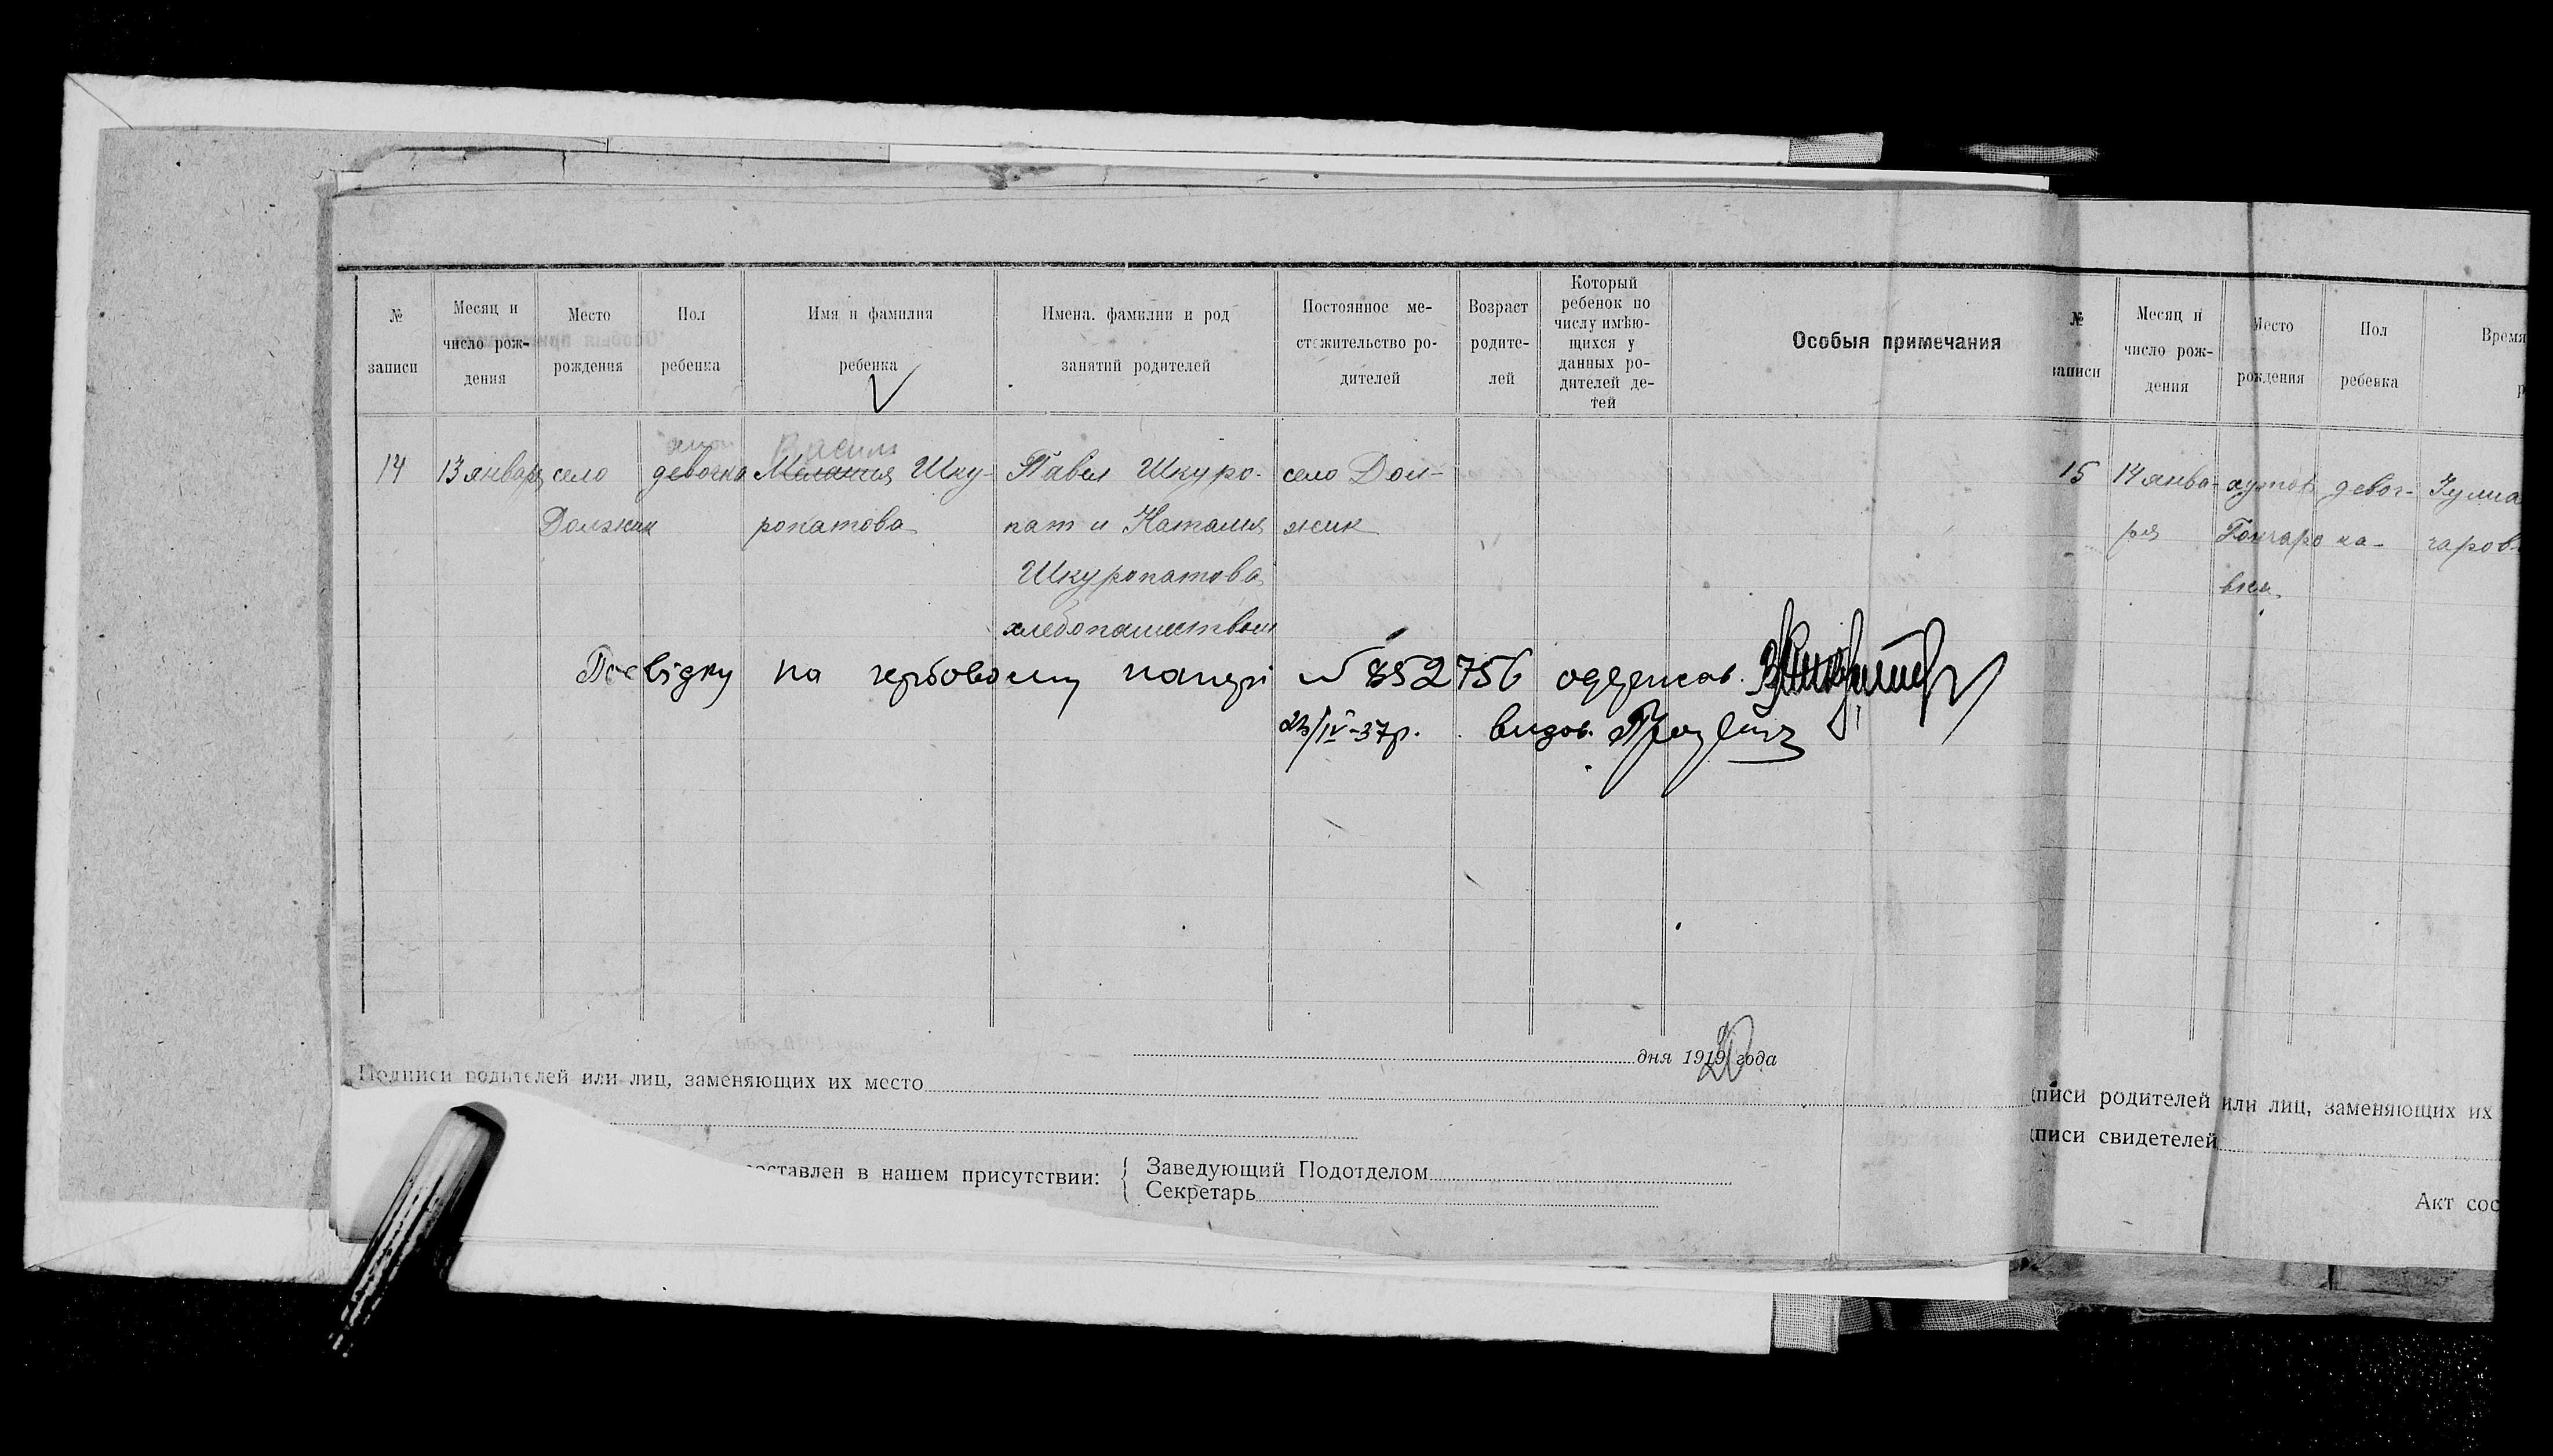 № записи
Месяц и число рождения
Место рождения
Пол ребенка
Имя и фамилия ребенка
Имена. фамилии и род занятий родителей
Постоянное местожительство родителей
Возраст родителей
Который ребенок по числу имѣющихся у данных родителей детей
Особыя примечания
14
13 января
село Должик
девочка
Василь
Мелания Шкуропатова
Павел Шкуропат и Наталия Шкуропатова
хлебопашеством
село Должик
Посвідку на гербовому папері № 852756 одержав.
23/IV-37р. видав.
дня 1919 года
20
Подписи родителей или лиц, заменяющих их место
составлен в нашем присутствии:
Заведующий Подотделом
Секретарь
№ записи
Месяц и число рождения
Место рождения
Пол ребенка
Время
15
14 января
хутор Гончаровка
девочка
чаров
писи родителей или лиц, заменяющих их
писи свидетелей
Акт сос